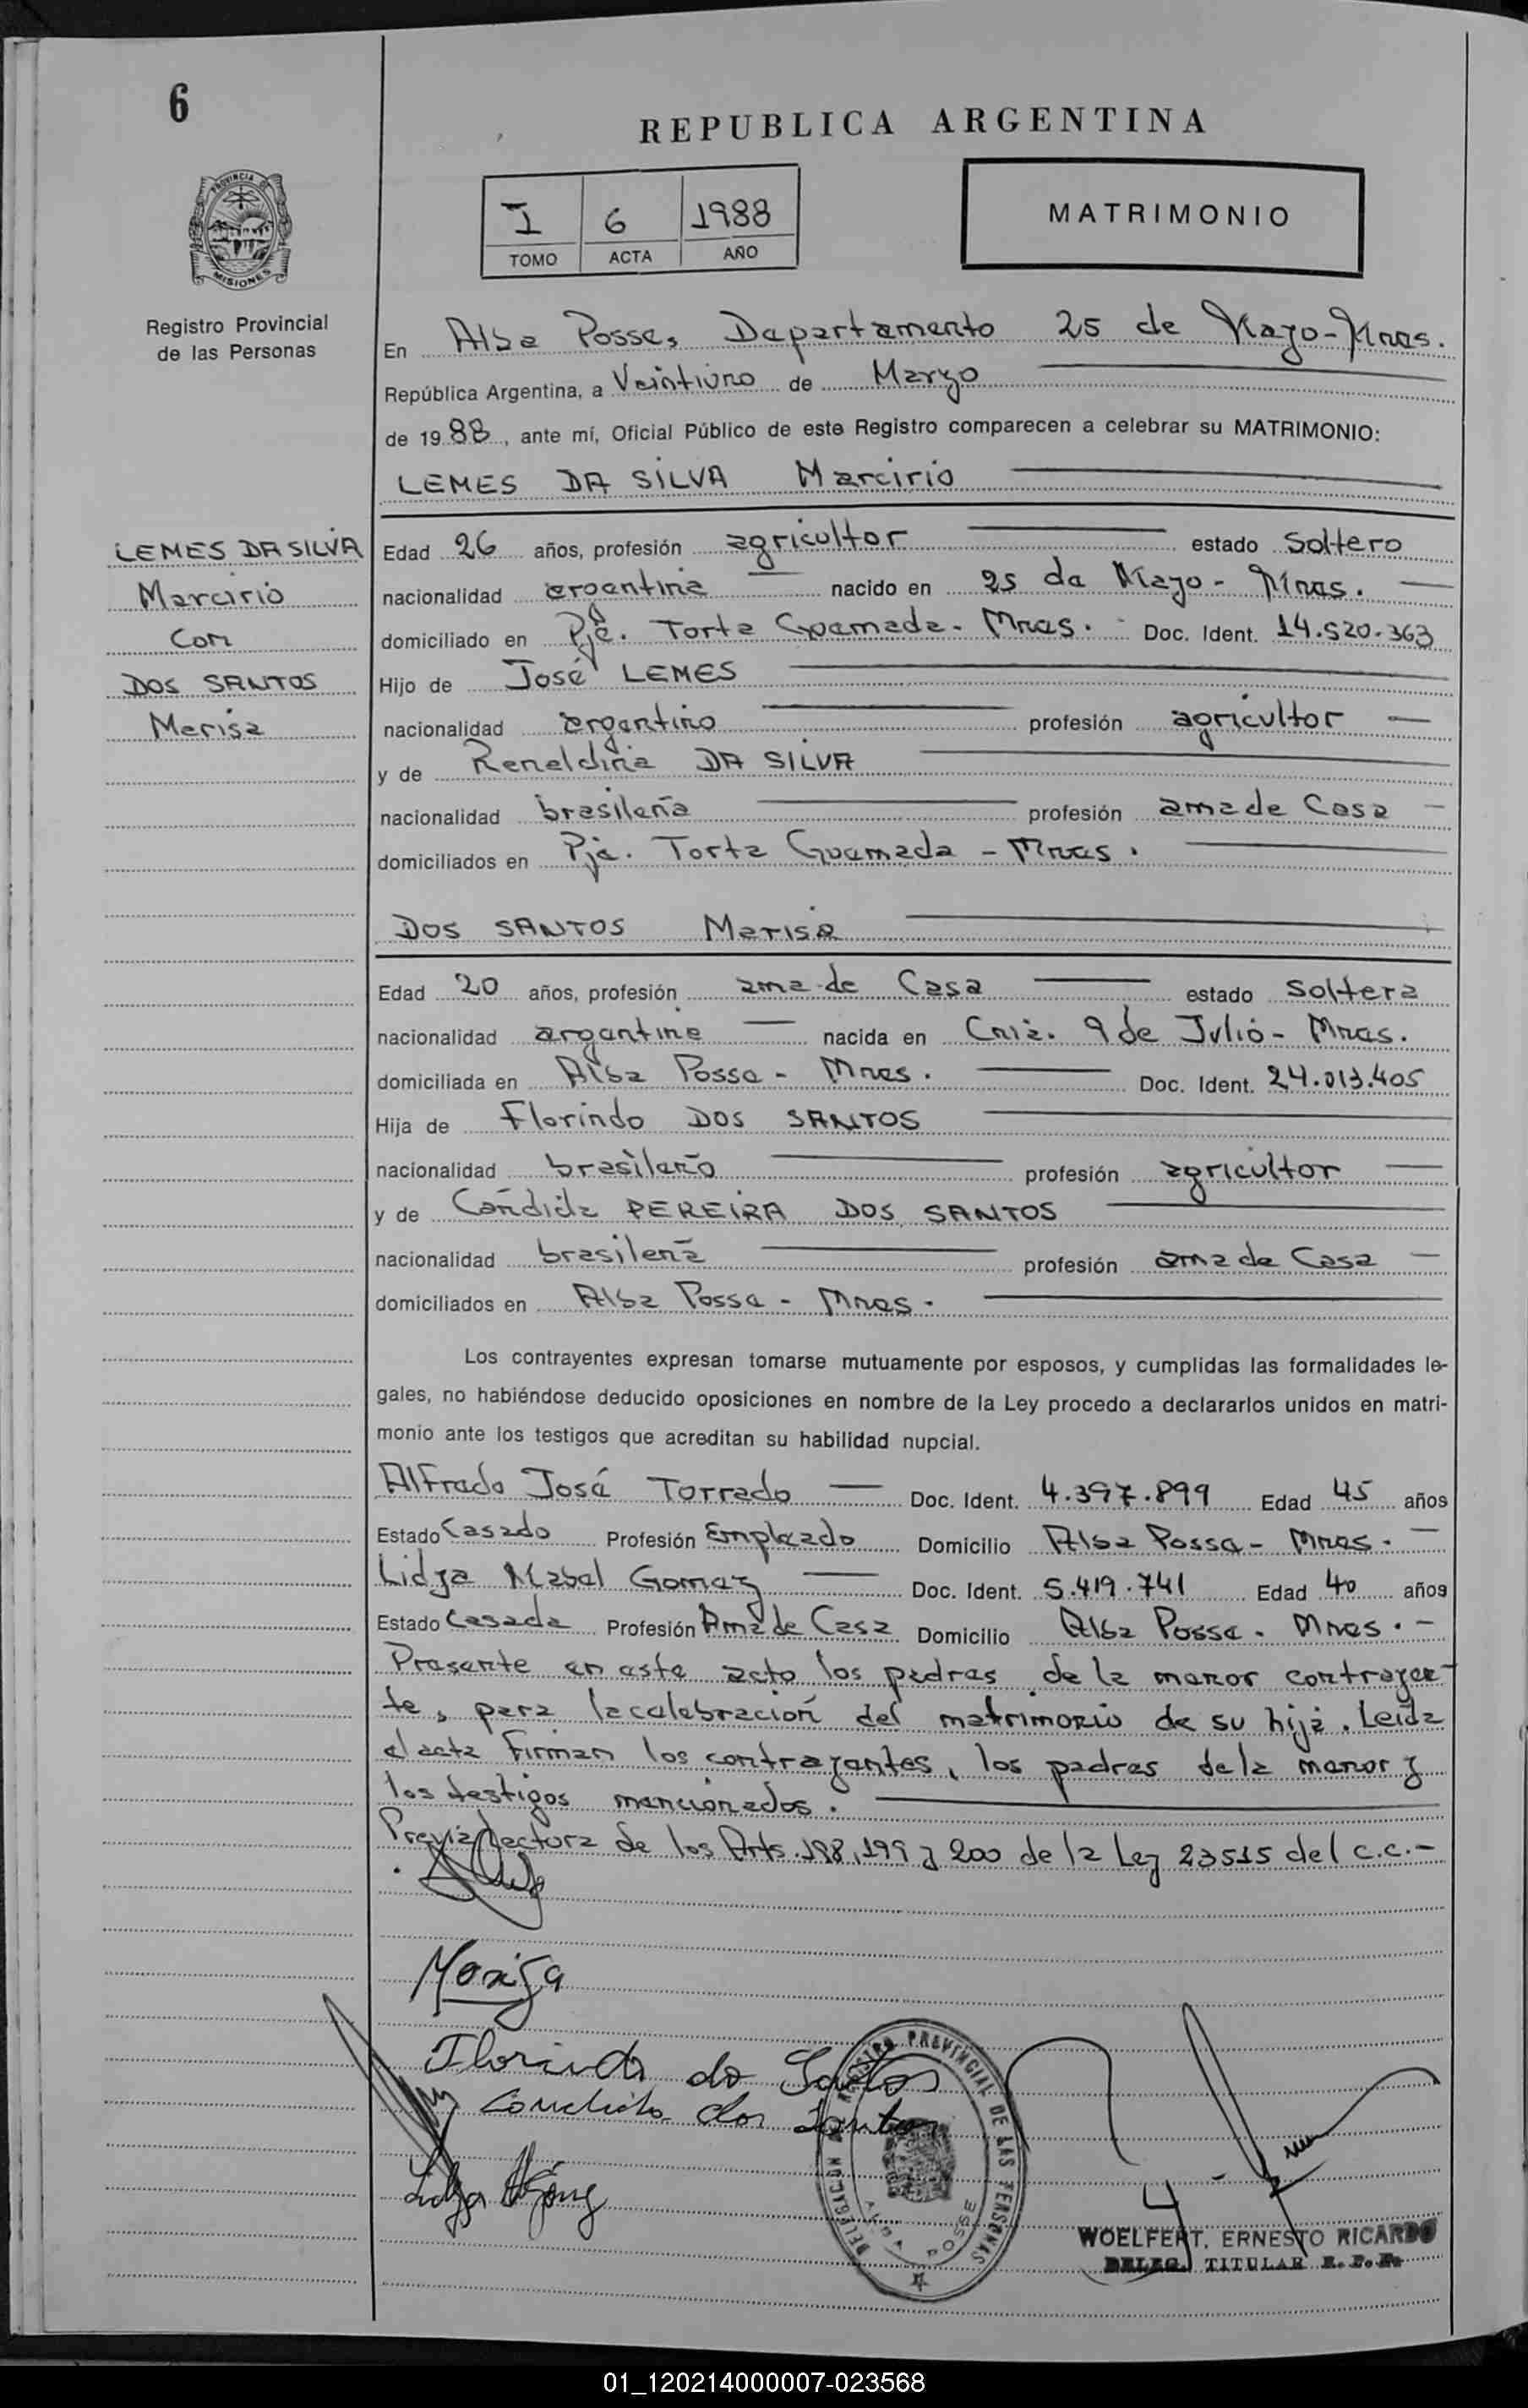 6
REPUBLICA ARGENTINA
PROVINCIA DE
MISIONES
I 6 1988
TOMO ACTA AÑO
MATRIMONIO
Registro Provincial
de las Personas
En Alba Posse, Departamento 25 de Mayo-Mnes.
República Argentina, a Veintiuno de Marzo
de 1988, ante mí, Oficial Público de este Registro comparecen a celebrar su MATRIMONIO:
LEMES DA SILVA Marcirio
LEMES DA SILVA
Marcirio
Con
DOS SANTOS
Marisa
Edad 26 años, profesión agricultor estado Soltero
nacionalidad argentina nacido en 25 de Mayo - Mnes.
domiciliado en Pje. Torta Quemada - Mnes. Doc. Ident. 14.520.363
Hijo de José LEMES
nacionalidad argentino profesión agricultor
y de Reneldina DA SILVA
nacionalidad brasileña profesión ama de Casa
domiciliados en Pje. Torta Quemada - Mnes.
DOS SANTOS Marisa
Edad 20 años, profesión ama de Casa estado Soltera
nacionalidad argentina nacida en Cnia. 9 de Julio - Mnes.
domiciliada en Alba Posse - Mnes. Doc. Ident. 24.013.405
Hija de Florindo DOS SANTOS
nacionalidad brasileño profesión agricultor
y de Cándida PEREIRA DOS SANTOS
nacionalidad brasileña profesión ama de Casa
domiciliados en Alba Posse - Mnes.
Los contrayentes expresan tomarse mutuamente por esposos, y cumplidas las formalidades le-
gales, no habiéndose deducido oposiciones en nombre de la Ley procedo a declararlos unidos en matri-
monio ante los testigos que acreditan su habilidad nupcial.
Alfredo José Torrado Doc. Ident. 4.397.899 Edad 45 años
Estado Casado Profesión Empleado Domicilio Alba Posse - Mnes.
Lidya Mabel Gomez Doc. Ident. 5.419.741 Edad 40 años
Estado Casada Profesión Ama de Casa Domicilio Alba Posse - Mnes.
Presente en este acto los padres de la menor contrayen-
te, para la celebración del matrimonio de su hija. Leída
el acta Firman los contrayentes, los padres de la menor y
los testigos mencionados.
Previa lectura de los Arts. 198, 199 y 200 de la Ley 23515 del c.c.-
Mariza
Florindo do Santos
Candida dos Santos
DELEGACION REGISTRO PROVINCIAL DE LAS PERSONAS
ALBA POSSE
WOELFERT, ERNESTO RICARDO
DELEG. TITULAR R. P. P.
01_120214000007-023568